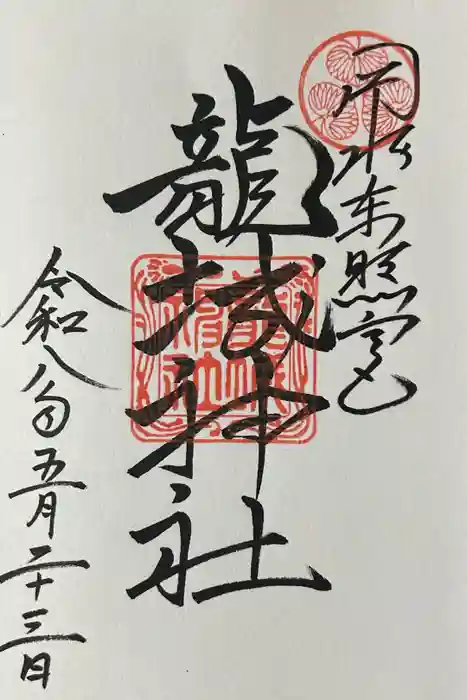 岡崎東照宮
龍城神社
令和八年五月二十三日